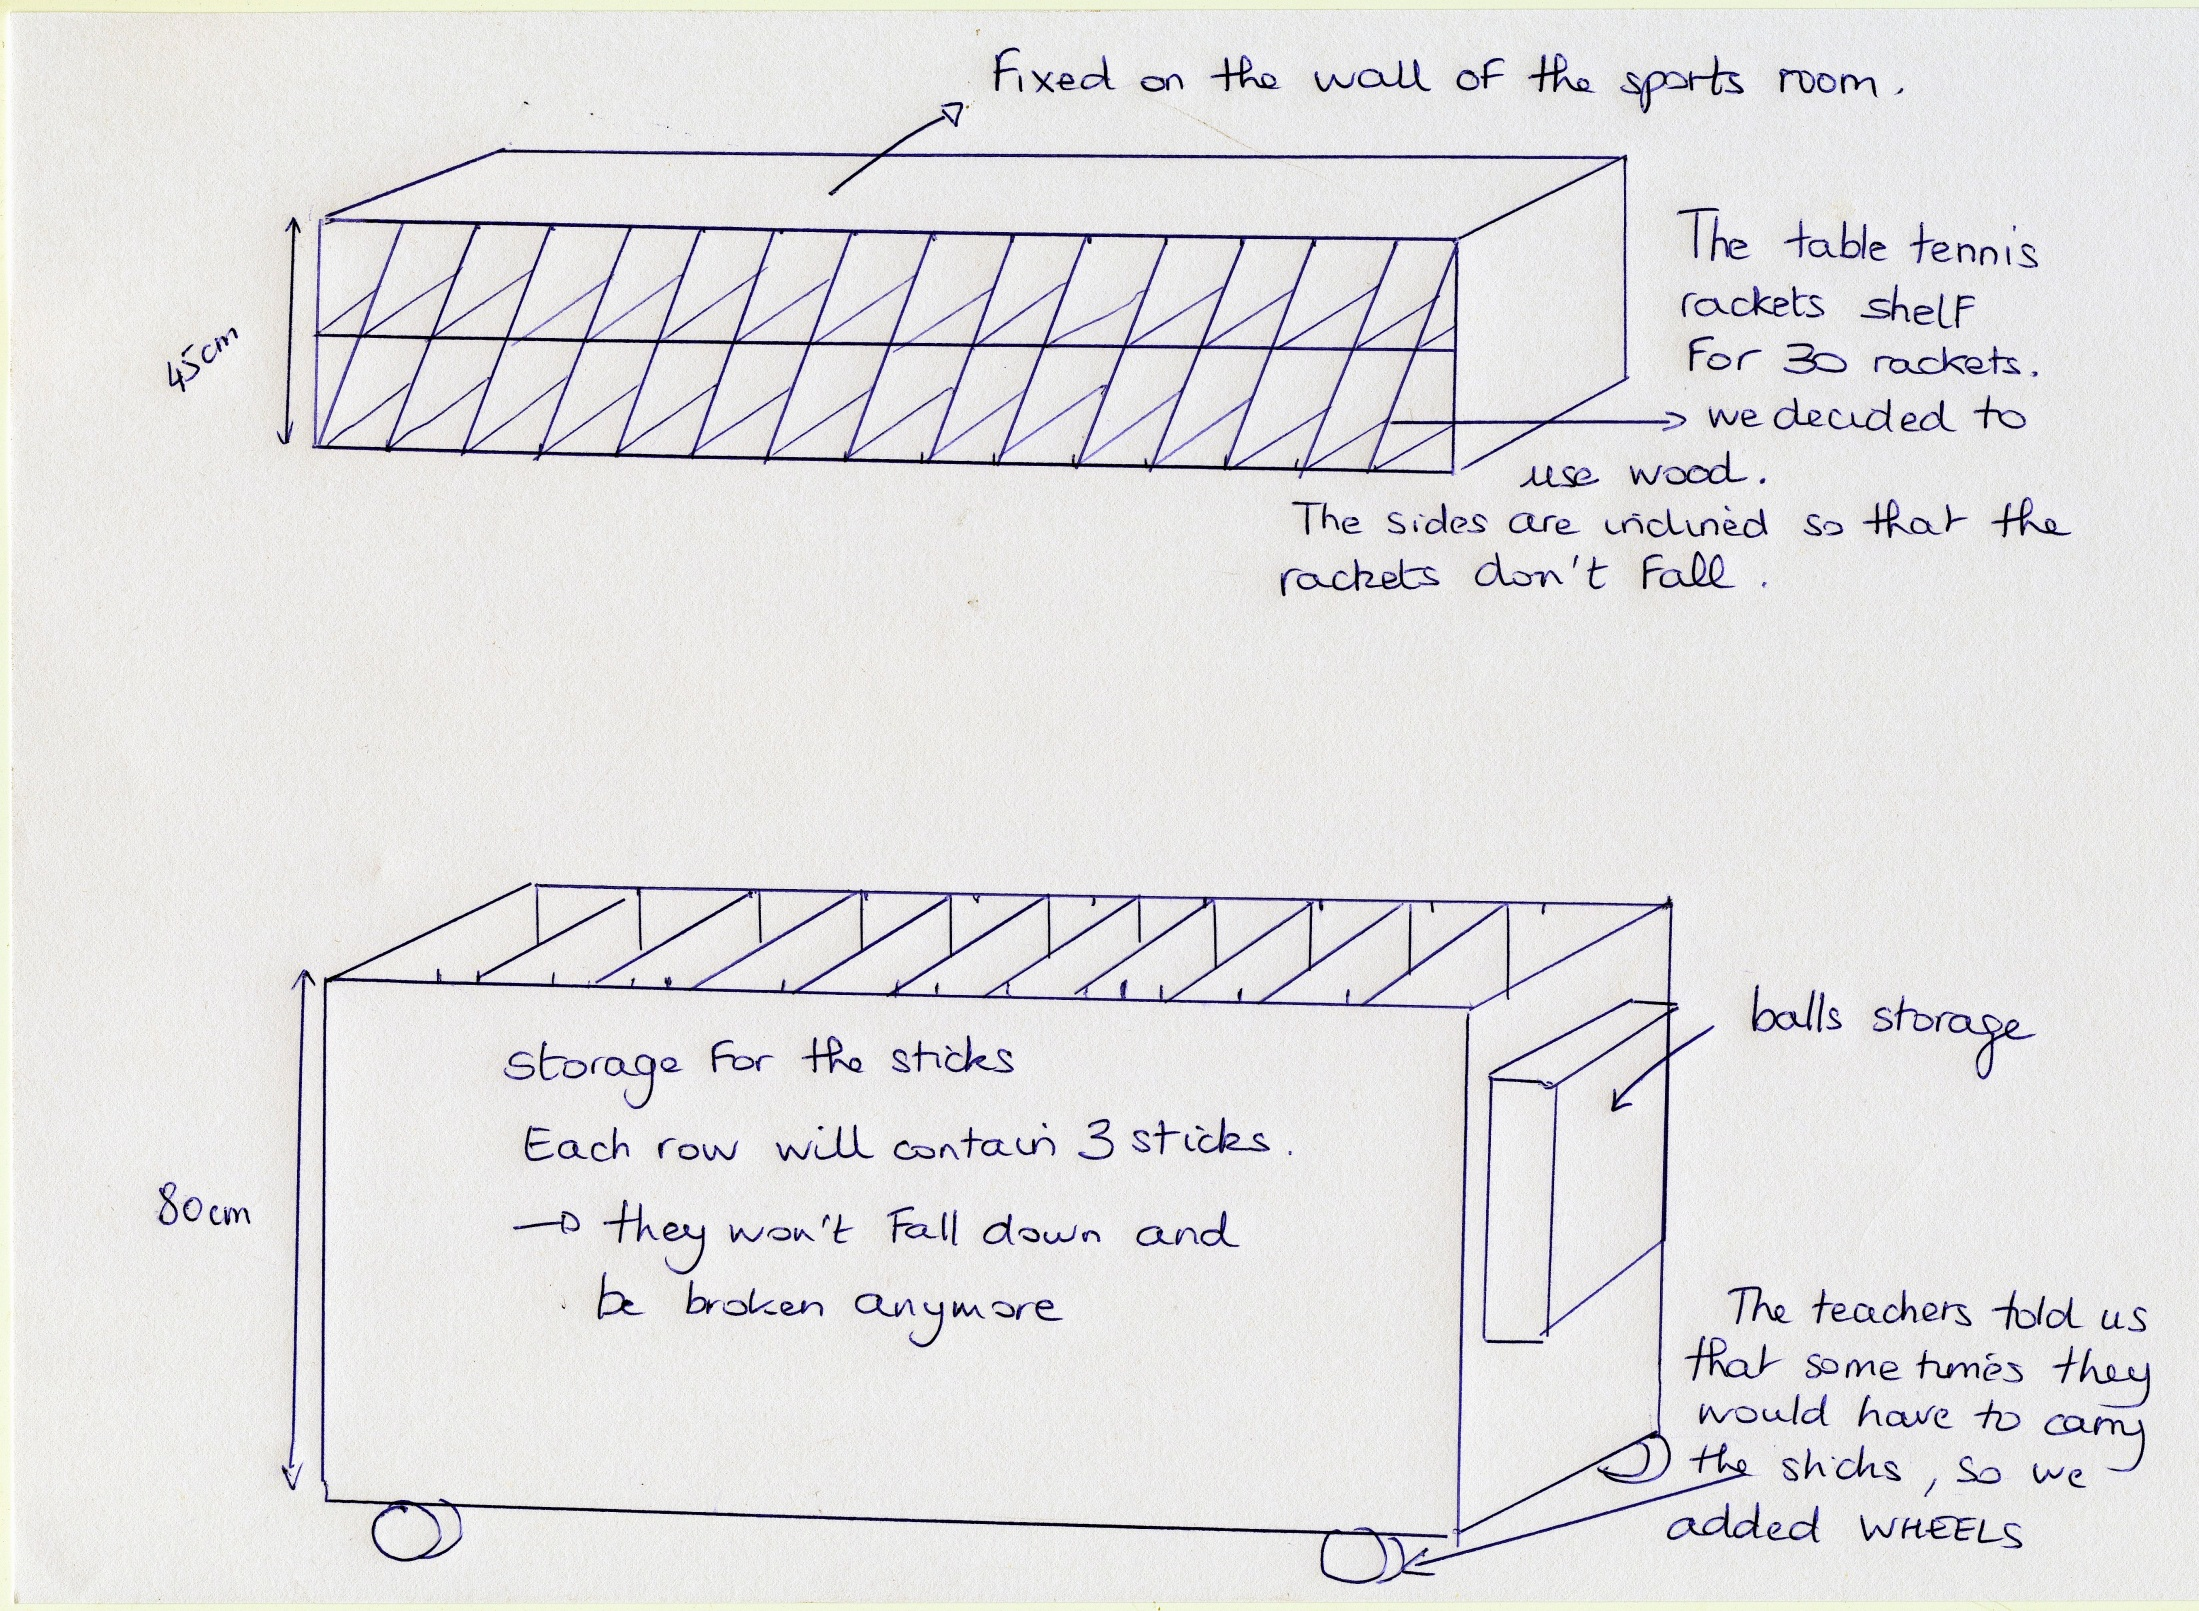 Fixed on the wall of the sports room.
45cm
The table tennis
rackets shelf
For 30 rackets.
we decided to
use wood.
The sides are inclined so that the
rackets don't fall.
balls storage
storage for the sticks
Each row will contain 3 sticks.
→ they won't fall down and
be broken anymore
80cm
The teachers told us
that sometimes they
would have to carry
the sticks, so we
added WHEELS